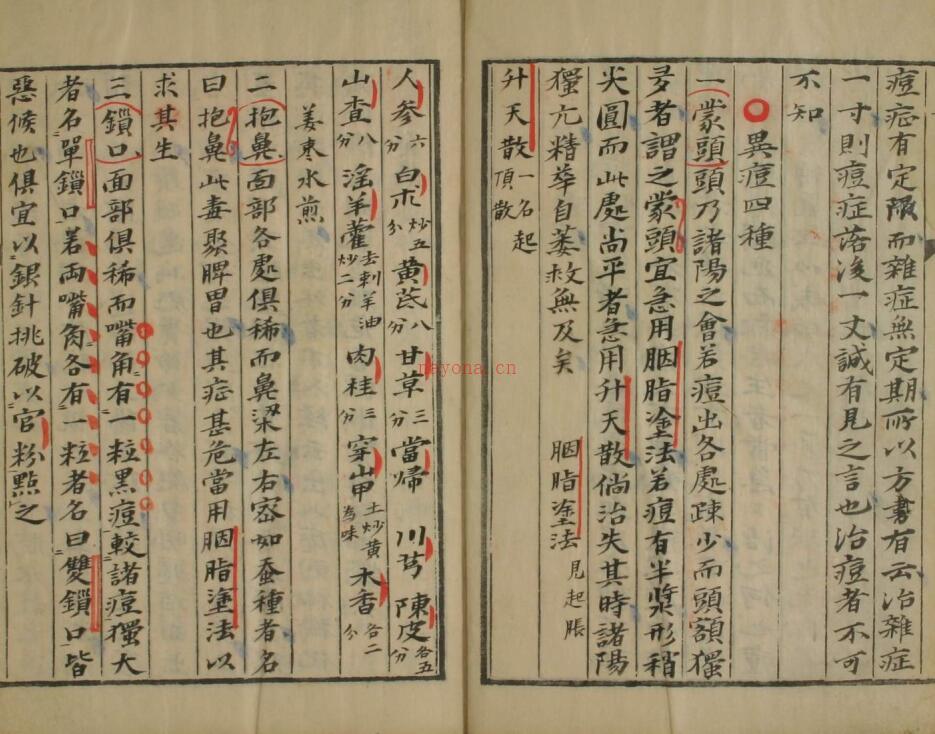 痘症有定限而雜症無定期所以方書有云治雜症
一寸則痘症落後一丈誠有見之言也治痘者不可
不知
異痘四種
一蒙頭頭乃諸陽之會若痘出各處疎少而頭額獨
多者謂之蒙頭宜急用胭脂塗法若痘有半漿形稍
尖圓而此處尚平者急用升天散倘治失其時諸陽
獨亢精華自萎救無及矣
胭脂塗法見起脹
升天散一名起頂散
人參六分 白朮炒五分 黃芪八分 甘草三分 當歸 川芎 陳皮各五分
山查八分 淫羊藿去刺羊油炒二分 肉桂三分 穿山甲土炒黃為味 木香各二分
姜枣水煎
二抱鼻面部各處俱稀而鼻梁左右密如蚕種者名
曰抱鼻此毒聚脾胃也其症甚危當用胭脂塗法以
求其生
三鎖口面部俱稀而嘴角有一粒黑痘較諸痘獨大
者名單鎖口若兩嘴角各有一粒者名曰雙鎖口皆
惡候也俱宜以銀針挑破以官粉點之
nayona.cn